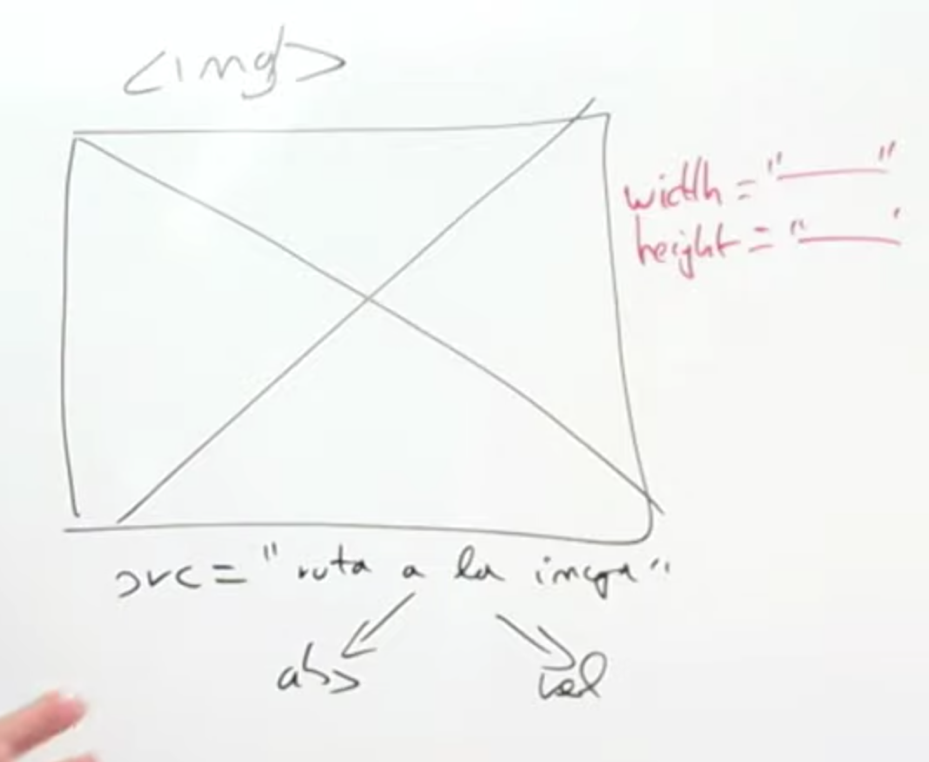 <img>
width = "____"
height = "____"
src = "ruta a la imagn"
abs
rel